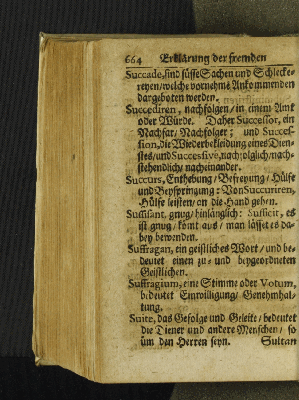 664 Erklärung der fremden
Succade, sind süsse Sachen und Schlecke-
reyen/ welche vornehme Ankommenden
dargeboten werden.
Succediren, nachfolgen/ in einem Amt
oder Würde. Daher Successor, ein
Nachfar/ Nachfolger; und Succes-
sion, die Wiederbekleidung eines Dien-
stes/ und Successive, nachfolglich/ nach-
stehendlich/ nacheinander.
Succurs, Enthebung/ Befreyung/ Hülfe
und Beyspringung: Von Succuriren,
Hülfe leisten/ an die Hand gehen.
Suffisant, gnug/ hinlänglich: Sufficit, es
ist gnug/ kömt aus/ man lässet es da-
bey bewenden.
Suffragan, ein geistliches Wort/ und be-
deutet einen zu- und beygeordneten
Geistlichen.
Suffragium, eine Stimme oder Votum,
bedeutet Einwilligung/ Genehmhal-
tung.
Suite, das Gefolge und Geleite/ bedeutet
die Diener und andere Menschen/ so
üm den Herren seyn. Sultan